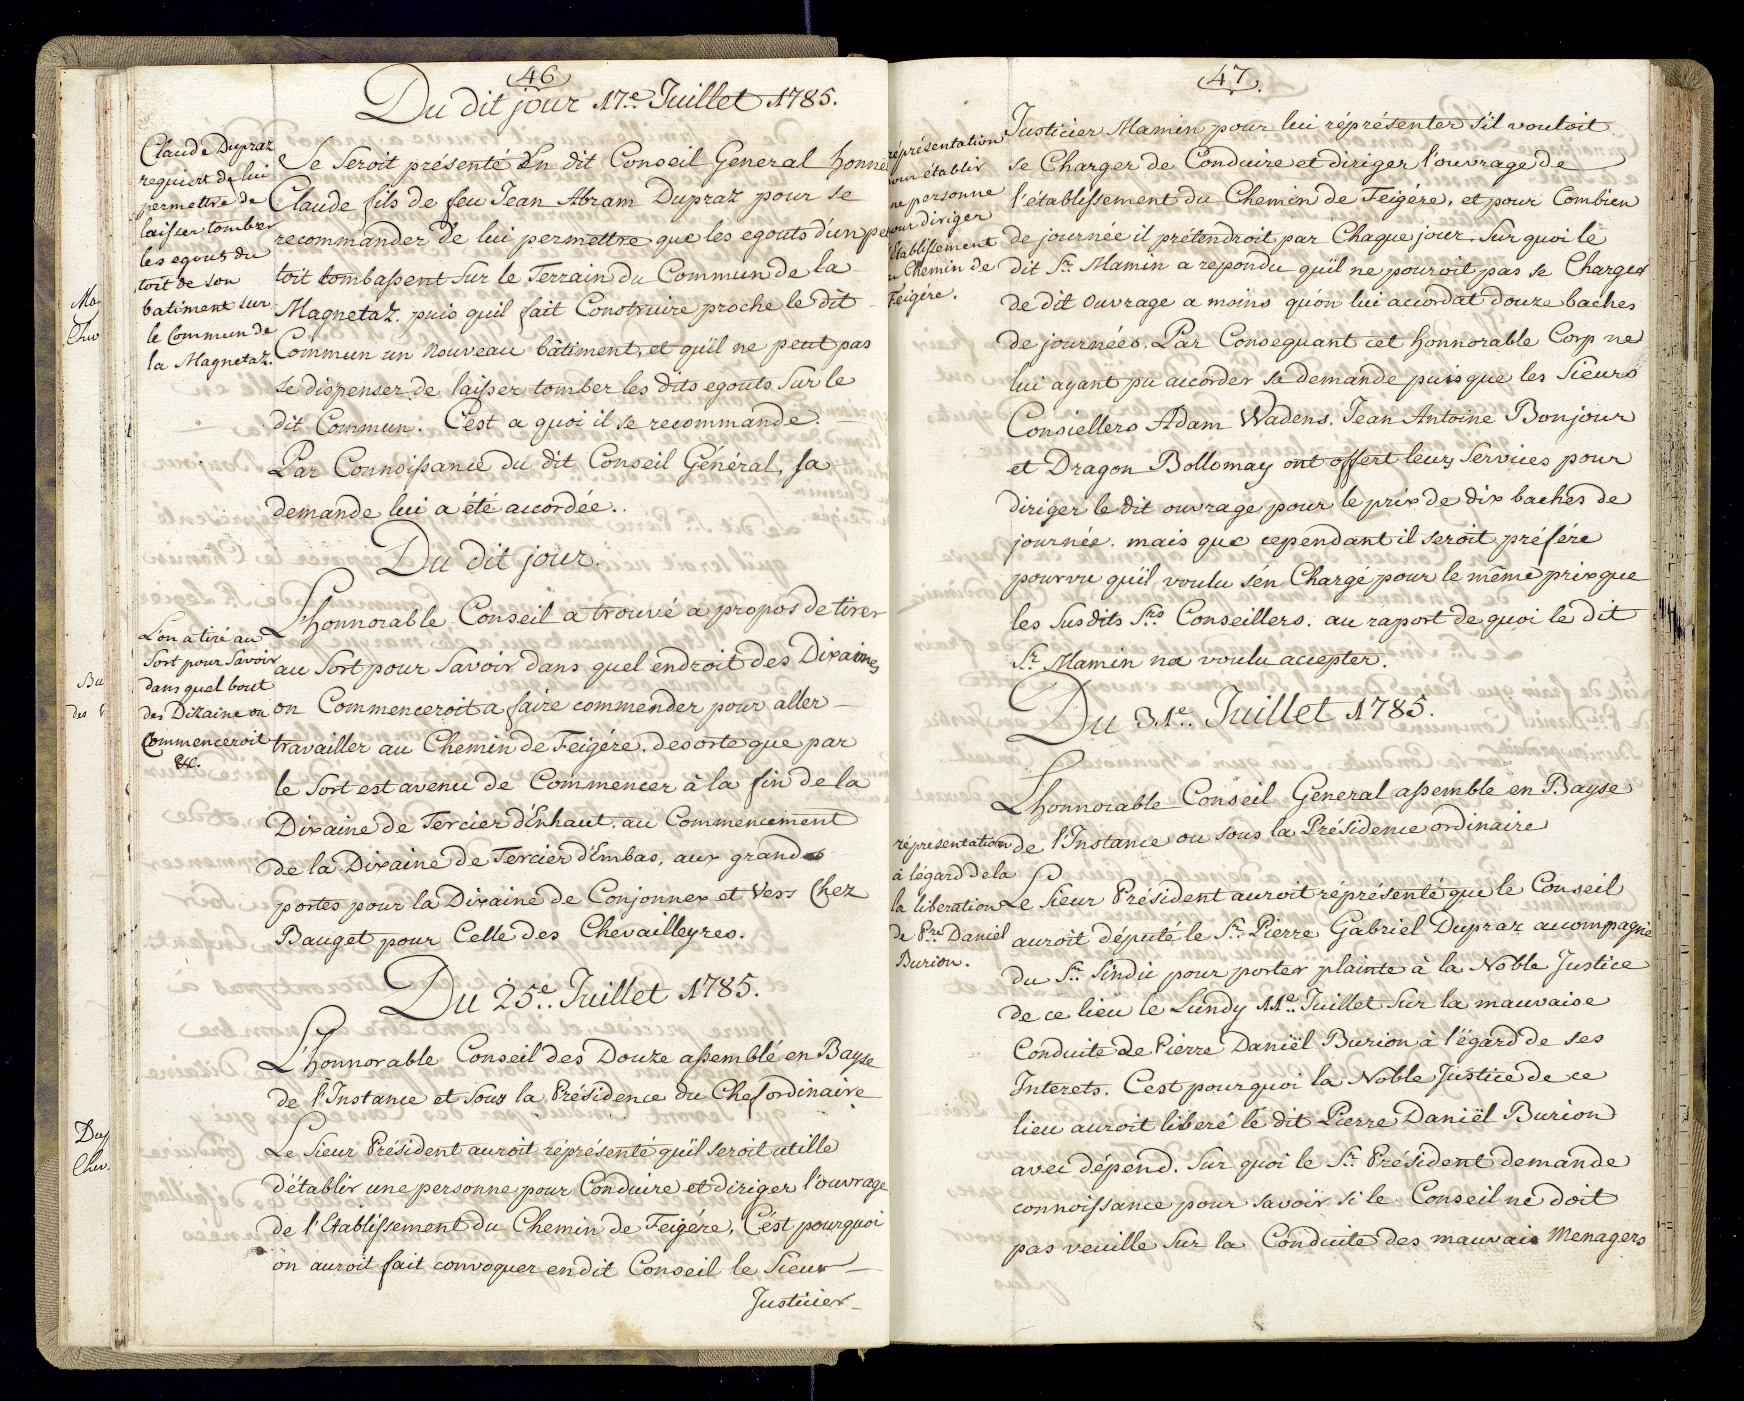 46
Du dit jour 17.e Juillet 1785.
Claude Dupraz
requiert de lui
permettre de
laisser tomber
les egouts du
toit de son
batiment sur
le Commun de
la Magnetaz.
Se Seroit présenté En dit Conseil General honné
Claude fils de feu Jean Abram Dupraz pour se
recommander de lui permettre que les egouts d'un pe
toit tombassent Sur le Terrain du Commun de la
Magnetaz. puis quil fait Construire proche le dit
Commun un Nouveau bâtiment, et qu'il ne peut pas
se dispenser de laisser tomber les dits egouts Sur le
dit Commun. C'est a quoi il se recommande.
Par Connoissance du dit Conseil Général, sa
demande lui a été accordée..
Du dit jour.
L'on a tiré au
Sort pour Savoir
dans quel bout
des Dizaine on
Commenceroit
&c.
L'honnorable Conseil a trouvé a propos de tirer
au Sort pour Savoir dans quel endroit des Dixaines
on Commenceroit a faire commender pour aller
travailler au Chemin de Feigére. desorte que par
le Sort est avenu de Commencer à la fin de la
Dixaine de Tercier d'Enhaut. au Commencement
de la Dixaine de Tercier d'Embas, aux grandes
portes pour la Dixaine de Conjonnex et Vers Chez
Bauget pour Celle des Chevailleyres.
Du 25.e Juillet 1785.
L'honnorable Conseil des Douze assemblé en Bayse
de l'Instance et Sous la Présidence du Chef ordinaire
Le Sieur Président auroit réprésenté qu'il seroit utille
d'établir une personne pour Conduire et diriger l'ouvrage
de l'Etablissement du Chemin de Feigére, C'est pourquoi
on auroit fait convoquer en dit Conseil le Sieur
Justicier
47.
réprésentation
our établir
ne personne
our diriger
établissement
u Chemin de
Feigére.
Justicier Mamin pour lui réprésenter s'il vouloit
se Charger de Conduire et diriger l'ouvrage de
l'établissement du Chemin de Feigére, et pour Combien
de journée il prétendroit par Chaque jour. Sur quoi le
dit Sr. Mamin a repondu qu'il ne pouroit pas se Charger
de dit ouvrage a moins qu'on lui accordat douze baches
de journées. Par Consequant cet honnorable Corp ne
lui ayant pu accorder sa demande puisque les Sieurs
Consiellers Adam Wadens. Jean Antoine Bonjour
et Dragon Bollomay ont offert leurs Services pour
diriger le dit ouvrage pour le prix de dix baches de
journée. mais que cependant il seroit préféré
pourvu qu'il voulu s'en Chargé pour le même prix que
les Susdits Srs. Conseillers. au raport de quoi le dit
Sr. Mamin na voulu accepter.
Du 31.e Juillet 1785.
L'honnorable Conseil General assemble en Bayse
de l'Instance ou sous la Présidence ordinaire
répresentation
à l'égard de la
la liberation
de Pre. Daniel
Burion.
Le Sieur Président auroit réprésenté que le Conseil
auroit député le Sr. Pierre Gabriel Dupraz accompagné
du Sr. Sindic pour porter plainte à la Noble Justice
de ce lieu le Lundy 11.e Juillet Sur la mauvaise
Conduite de Pierre Daniël Burion à l'égard de ses
Interets. C'est pourquoi la Noble Justice de ce
lieu auroit liberé le dit Pierre Daniël Burion
avec dépend. Sur quoi le Sr. Président demande
connoissance pour savoir si le Conseil ne doit
pas veuille Sur la Conduite des mauvais Menagers